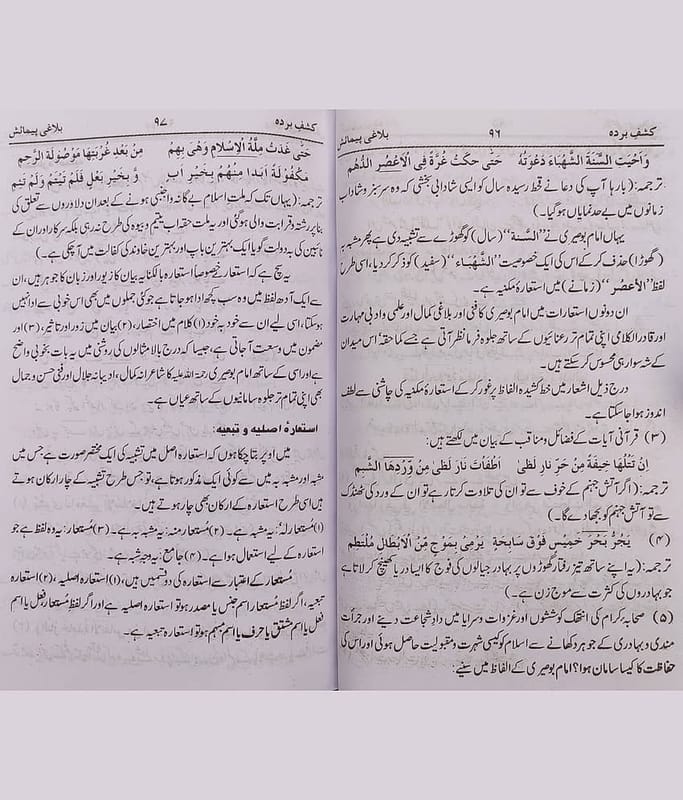 کشفِ بردہ ۹۶ بلاغی پیمائش
وَاَحْیَتِ السَّنَةَ الشَّهْبَاءَ دَعْوَتُهُ حَتّٰی حَکَتْ غُرَّةً فِی الْاَعْصُرِ الدُّهُمِ
ترجمہ: (بارہا آپ کی دعا نے قحط رسیدہ سال کو ایسی شادابی بخشی کہ وہ سرسبز و شاداب
زمانوں میں بے حد نمایاں ہوگیا۔)
یہاں امام بوصیری نے ”السَّنة“ (سال) کو گھوڑے سے تشبیہ دی ہے پھر مشبہ بہ
(گھوڑا) حذف کرکے اس کی ایک خصوصیت ”الشَّهْبَاء“ (سفید) کو ذکر کردیا، اسی طرح
لفظ ”الأعصُر“ (زمانے) میں استعارۂ مکنیہ ہے۔
ان دونوں استعارات میں امام بوصیری کا فنی اور بلاغی کمال اور علمی و ادبی مہارت
اور قادر الکلامی اپنی تمام تر رعنائیوں کے ساتھ جلوہ فرما نظر آتی ہے جسے کما حقہ‘ اس میدان
کے شہسوار ہی محسوس کرسکتے ہیں۔
درج ذیل اشعار میں خط کشیدہ الفاظ پر غور کرکے استعارۂ مکنیہ کی چاشنی سے لطف
اندوز ہوا جاسکتا ہے۔
(۳) قرآنی آیات کے فضائل و مناقب کے بیان میں لکھتے ہیں:
اِنْ تَتْلُهَا خِیْفَةً مِنْ حَرِّ نَارِ لَظٰی اَطْفَأْتَ نَارَ لَظٰی مِنْ وِرْدِهَا الشَّبِمِ
ترجمہ: (اگر آتش جہنم کے خوف سے تو ان کی تلاوت کرتا رہے تو ان کے ورد کی ٹھنڈک
سے تو آتش جہنم کو بجھا دے گا۔)
(۴) یَجُرُّ بَحْرَ خَمِیْسٍ فَوْقَ سَابِحَةٍ یَرْمِیْ بِمَوْجٍ مِّنَ الْاَبْطَالِ مُلْتَطِمِ
ترجمہ: (یہ اپنے ساتھ تیز رفتار گھوڑوں پر بہادر جیالوں کی فوج کا ایسا دریا کھینچ کر لاتا ہے
جو بہادروں کی کثرت سے موج زن ہے۔)
(۵) صحابہ کرام کی انتھک کوششوں اور غزوات و سرایا میں داد شجاعت دینے اور جرأت
مندی و بہادری کے جوہر دکھانے سے اسلام کو کیسی شہرت و مقبولیت حاصل ہوئی اور اس کی
حفاظت کا کیسا سامان ہوا؟ امام بوصیری کے الفاظ میں سنیے:
کشفِ بردہ ۹۷ بلاغی پیمائش
حَتّٰی غَدَتْ مِلَّةُ الْاِسْلَامِ وَهْیَ بِهِمْ مِنْ بَعْدِ غُرْبَتِهَا مَوْصُوْلَةَ الرَّحِمِ
مَکْفُوْلَةً اَبَدًا مِنْهُمْ بِخَیْرِ اَبٍ وَّ بِخَیْرِ بَعْلٍ فَلَمْ تَیْتَمْ وَلَمْ تَئِمِ
ترجمہ: (یہاں تک کہ ملت اسلام بے گانہ و اجنبی ہونے کے بعد ان دلاوروں سے تعلق کی
بنا پر رشتہ و قرابت والی ہوگئی اور یہ ملت حقہ اب یتیم و بیوہ کی طرح نہ رہی بلکہ سرکار اور ان کے
نائبین کی بہ دولت گویا ایک بہترین باپ اور بہترین خاوند کی کفالت میں آچکی ہے۔)
یہ سچ ہے کہ استعارے خصوصاً استعارہ بالکنایہ بیان کا زیور اور زبان کا جوہر ہیں، ان
سے ایک آدھ لفظ میں وہ سب کچھ ادا ہوجاتا ہے جو کئی جملوں میں بھی اس خوبی سے ادا نہیں
ہوسکتا، اسی لیے ان سے خود بہ خود (۱) کلام میں اختصار، (۲) بیان میں زور اور تاثیر، (۳) اور
مضمون میں وسعت آجاتی ہے، جیسا کہ درج بالا مثالوں کی روشنی میں یہ بات بخوبی واضح
ہے اور اسی کے ساتھ امام بوصیری رحمۃ اللہ علیہ کا شاعرانہ کمال، ادیبانہ جلال اور فنی حسن و جمال
بھی اپنی تمام تر جلوہ سامانیوں کے ساتھ عیاں ہے۔
استعارۂ اصلیہ و تبعیہ:
میں اوپر بتا چکا ہوں کہ استعارہ اصل میں تشبیہ کی ایک مختصر صورت ہے جس میں
مشبہ اور مشبہ بہ میں سے کوئی ایک مذکور ہوتا ہے، تو جس طرح تشبیہ کے چار ارکان ہوتے
ہیں اسی طرح استعارہ کے ارکان بھی چار ہوتے ہیں۔
(۱) مُستعار لہٗ: یہ مشبہ ہے۔ (۲) مُستعار منہ: یہ مشبہ بہ ہے۔ (۳) مُستعار: یہ وہ لفظ ہے جو
استعارہ کے لیے استعمال ہوا ہے۔ (۴) جامع: یہ وجہِ شبہ ہے۔
مُستعار کے اعتبار سے استعارہ کی دو قسمیں ہیں، (۱) استعارہ اصلیہ، (۲) استعارہ
تبعیہ، اگر لفظ مُستعار اسم جنس یا مصدر ہو تو استعارہ اصلیہ ہے اور اگر لفظ مُستعار فعل یا اسم
فعل یا اسم مشتق یا حرف یا اسم مبہم ہو تو استعارہ تبعیہ ہے۔